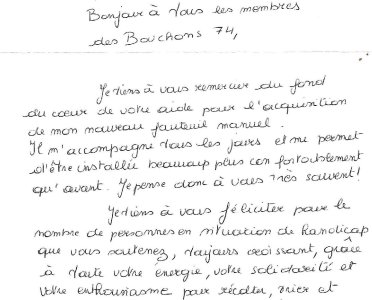 Bonjour à tous les membres
des Bouchons 74,
Je tiens à vous remercier du fond
du cœur de votre aide pour l'acquisition
de mon nouveau fauteuil manuel.
Il m'accompagne tous les jours et me permet
d'être installée beaucoup plus confortablement
qu'avant. Je pense donc à vous très souvent!
Je tiens à vous féliciter pour le
nombre de personnes en situation de handicap
que vous soutenez, toujours croissant, grâce
à toute votre énergie, votre solidarité et
votre enthousiasme pour récolter, trier et